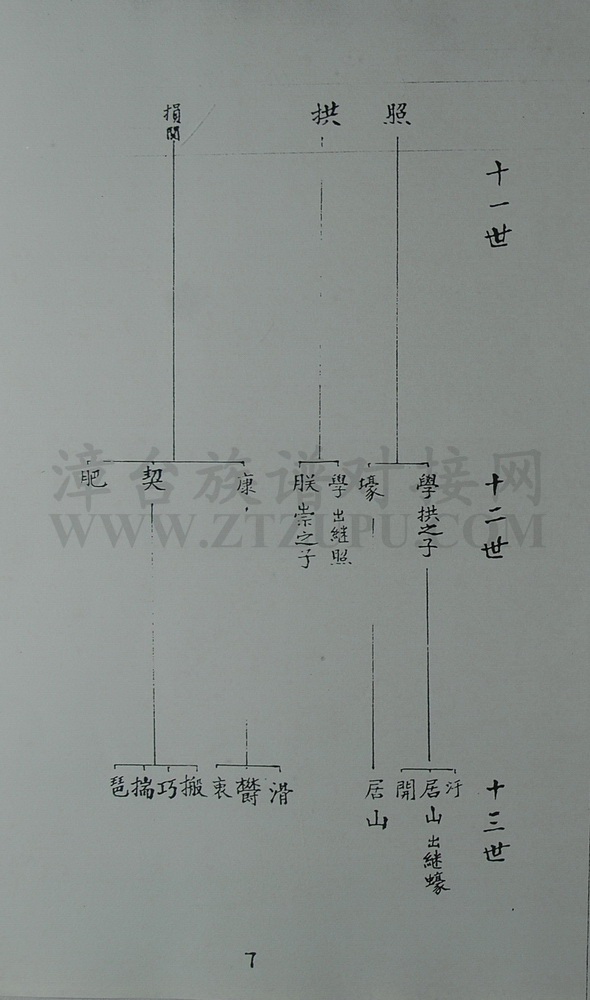 十一世
照
拱
損閔
十二世
學 拱之子
壕
學 出継照
朕 崇之子
康
契
肥
十三世
汙
居山 出継蠔
開
居山
滑
欝
衷
搬
巧
揣
琶
漳台族谱对接网
WWW.ZTZUPU.COM
7